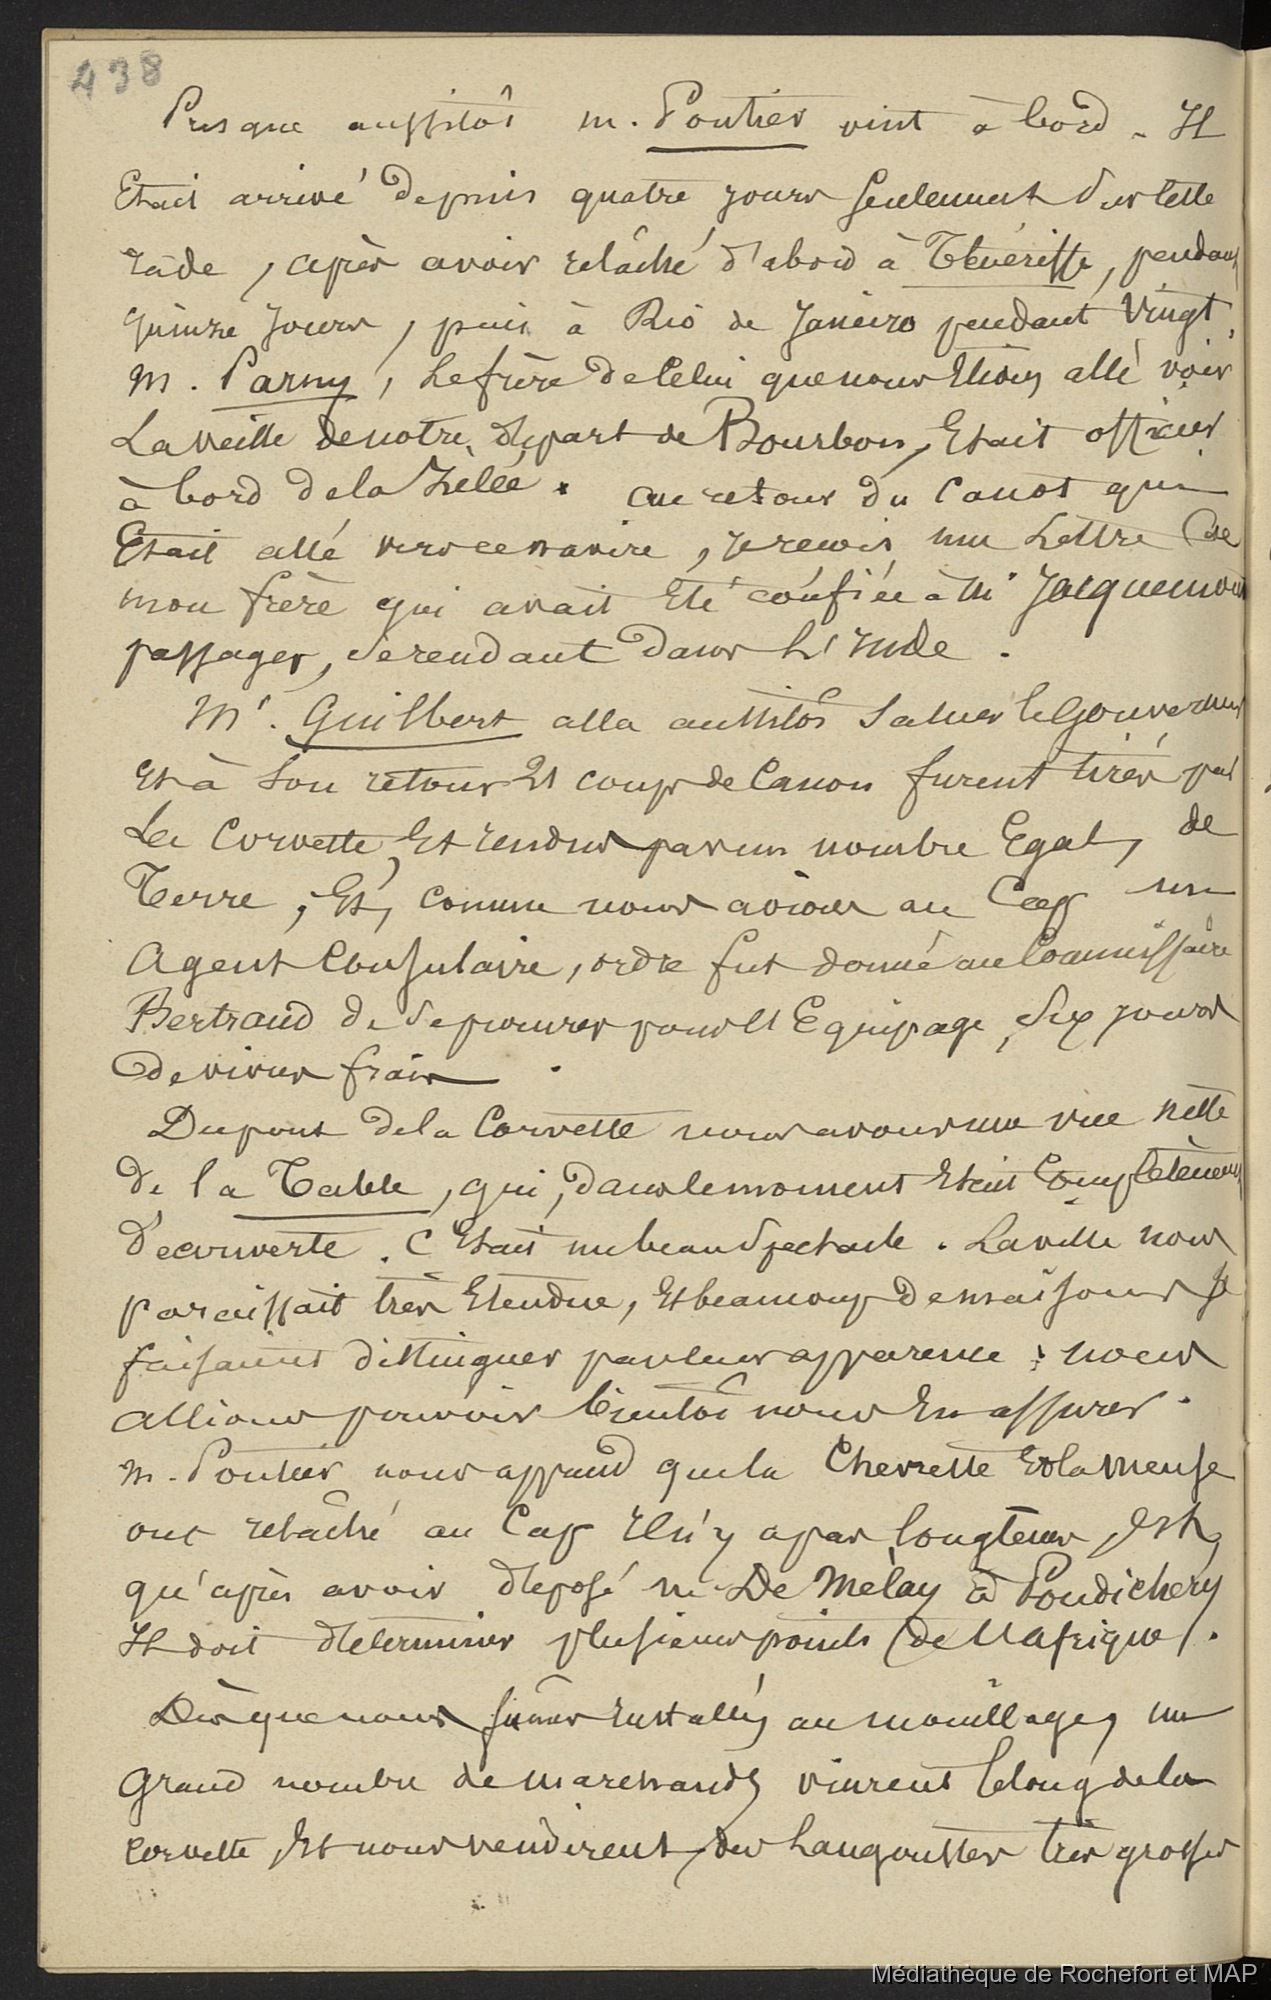 438
Presque aussitôt m. Poutier vint à bord. Il
Etait arrivé depuis quatre jours seulement sur cette
rade, après avoir relâché d'abord à Téneriffe, pendant
quinze jours, puis à Rio de Janeiro pendant vingt,
M. Parny, le frère de celui que nous Etions allé voir
La veille de notre départ de Bourbon, Etait officier
à bord de la Zélée. au retour du canot qui
Etait allé vers ce navire, je reçois une Lettre de
mon frère qui avait été confiée à Mr Jacquemont
passager, se rendant dans L'Inde.
Mr. Guilbert alla aussitôt saluer le Gouverneur
Et à son retour 21 coups de Canon furent tirés par
La Corvette, Et rendus par un nombre Egal, de
Terre; Et, comme nous avions au Cap un
Agent Consulaire, ordre fut donné au Commissaire
Bertrand de se procurer pour l'Equipage, six jours
de vivres frais.
Du pont de la Corvette nous avons une vue nette
de la Table, qui, dans le moment Etait Complètement
découverte. C'Etait un beau spectacle. La ville nous
paraissait très Etendue, Et beaucoup de maisons se
faisaient distinguer par leur apparence; nous
allions pouvoir bientôt nous En assurer.
M. Poutier nous apprend que la Chevrette Et la Meuse
ont relâché au Cap Il n'y a pas longtems, Et
qu'après avoir déposé M. De Mélay à Pondichery
Il doit déterminer plusieurs points (de l'Afrique).
Dès que nous fûmes installés au mouillage, un
Grand nombre de marchands vinrent le long de la
corvette Et nous vendirent, des Langoustes très grosses
Médiathèque de Rochefort et MAP